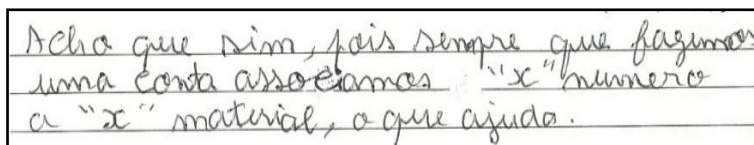 Acho que sim, pois sempre que fazemos
uma conta associamos "x" numero
a "x" material, o que ajuda.